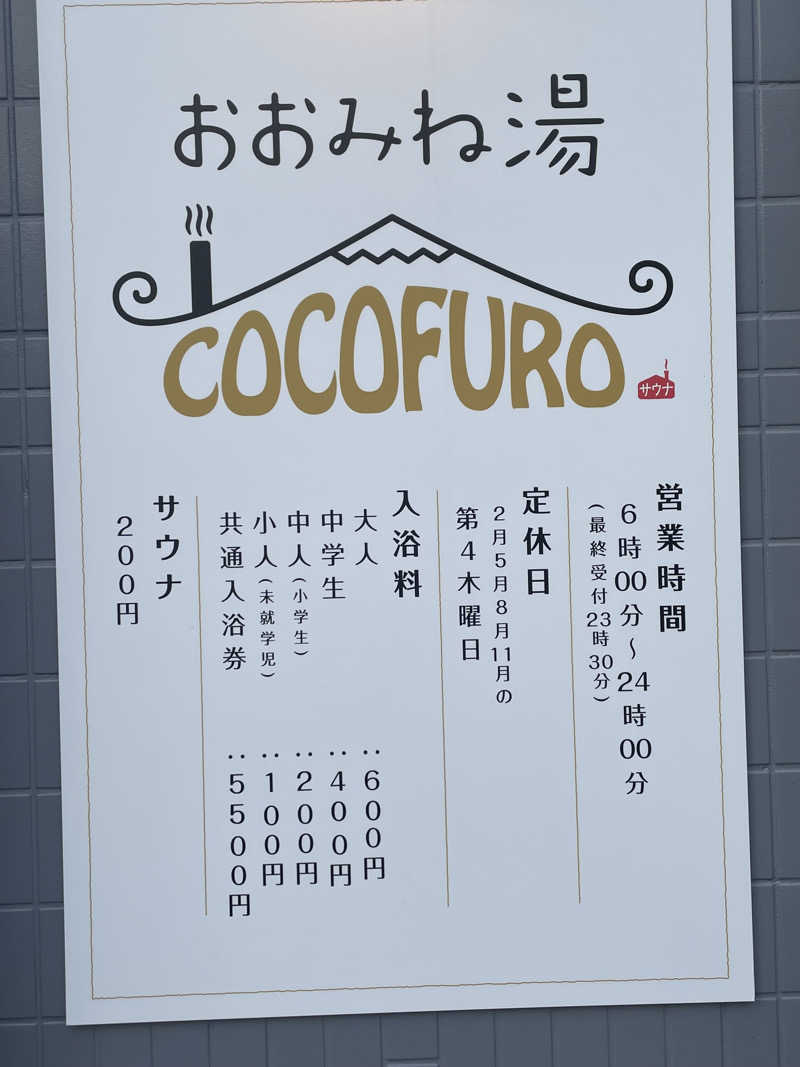 おおみね湯
COCOFURO
サウナ
営業時間
6時00分～24時00分
（最終受付23時30分）
定休日
2月5月8月11月の
第4木曜日
入浴料
大人：600円
中学生：400円
中人（小学生）：200円
小人（未就学児）：100円
共通入浴券：5500円
サウナ
200円